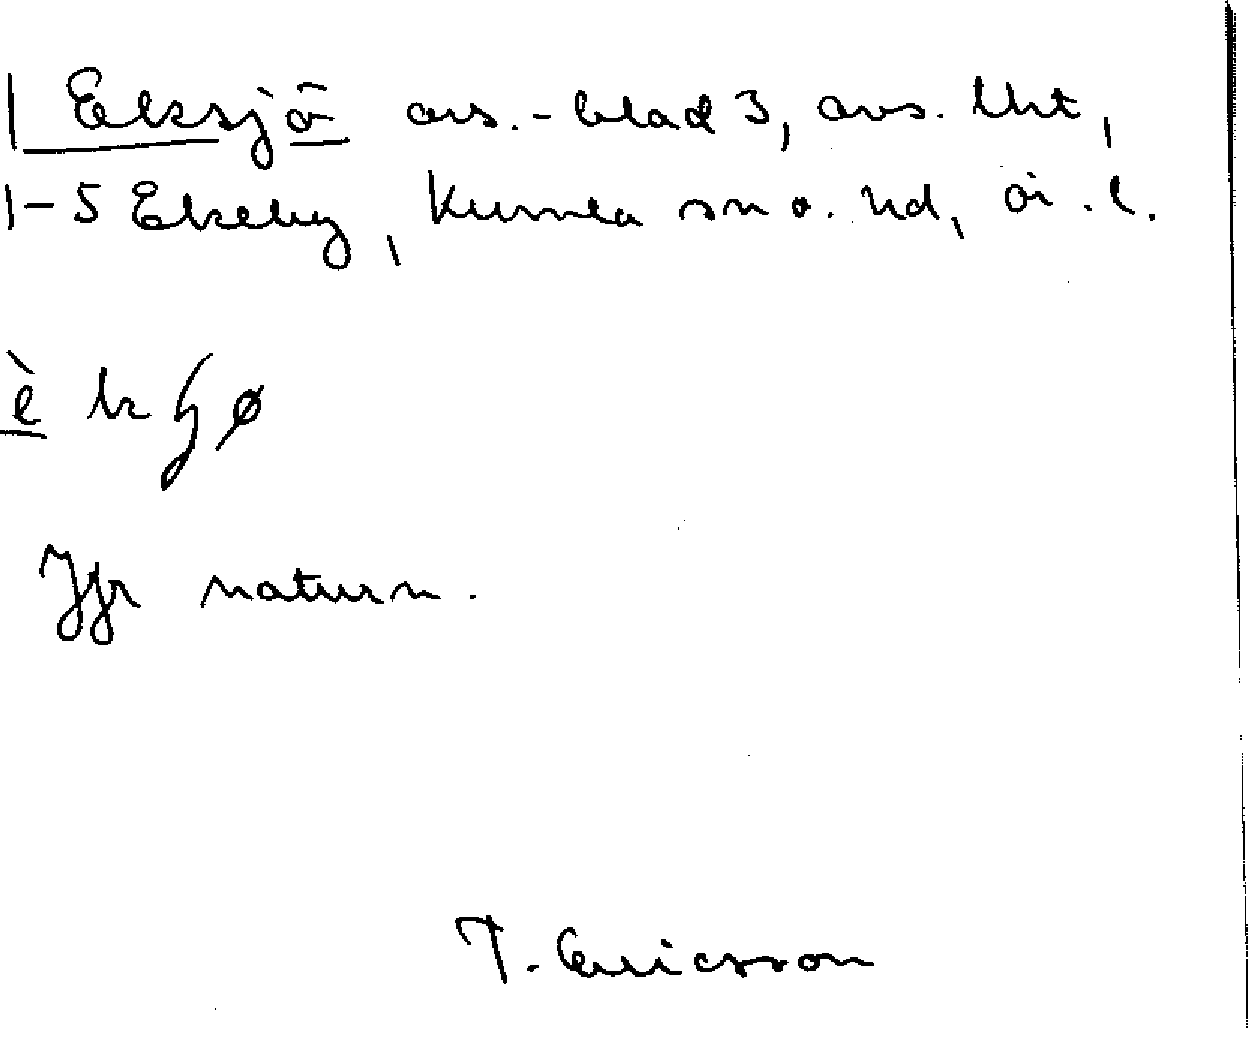 Eksjö avs.-blad 3, avs. lht,
1-5 Ekeby, Kumla sn o. hd, Ör. l.
è k ø
Jfr naturn.
T. Ericsson